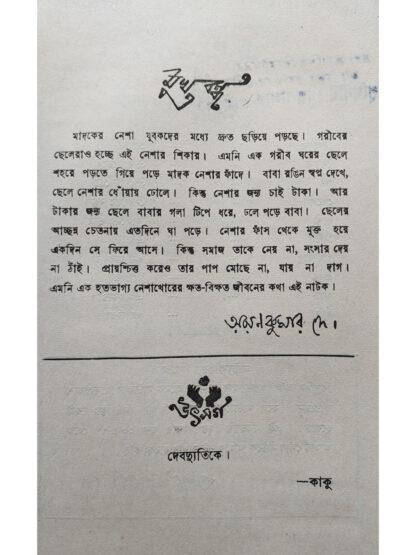 মুখবন্ধ
মাদকের নেশা যুবকদের মধ্যে দ্রুত ছড়িয়ে পড়ছে। গরীবের
ছেলেরাও হচ্ছে এই নেশার শিকার। এমনি এক গরীব ঘরের ছেলে
শহরে পড়তে গিয়ে পড়ে মাদক নেশার ফাঁদে। বাবা রঙিন স্বপ্ন দেখে,
ছেলে নেশার ধোঁয়ায় ঢোলে। কিন্তু নেশার জন্য চাই টাকা। আর
টাকার জন্য ছেলে বাবার গলা টিপে ধরে, ঢলে পড়ে বাবা। ছেলের
আচ্ছন্ন চেতনায় এতদিনে ঘা পড়ে। নেশার ফাঁস থেকে মুক্ত হয়ে
একদিন সে ফিরে আসে। কিন্তু সমাজ তাকে নেয় না, সংসার দেয়
না ঠাঁই। প্রায়শ্চিত্ত করেও তার পাপ মোছে না, যায় না দাগ।
এমনি এক হতভাগ্য নেশাখোরের ক্ষত-বিক্ষত জীবনের কথা এই নাটক।
কুমার দে।
উৎসর্গ
দেবছ্যতিকে।
—কাকু